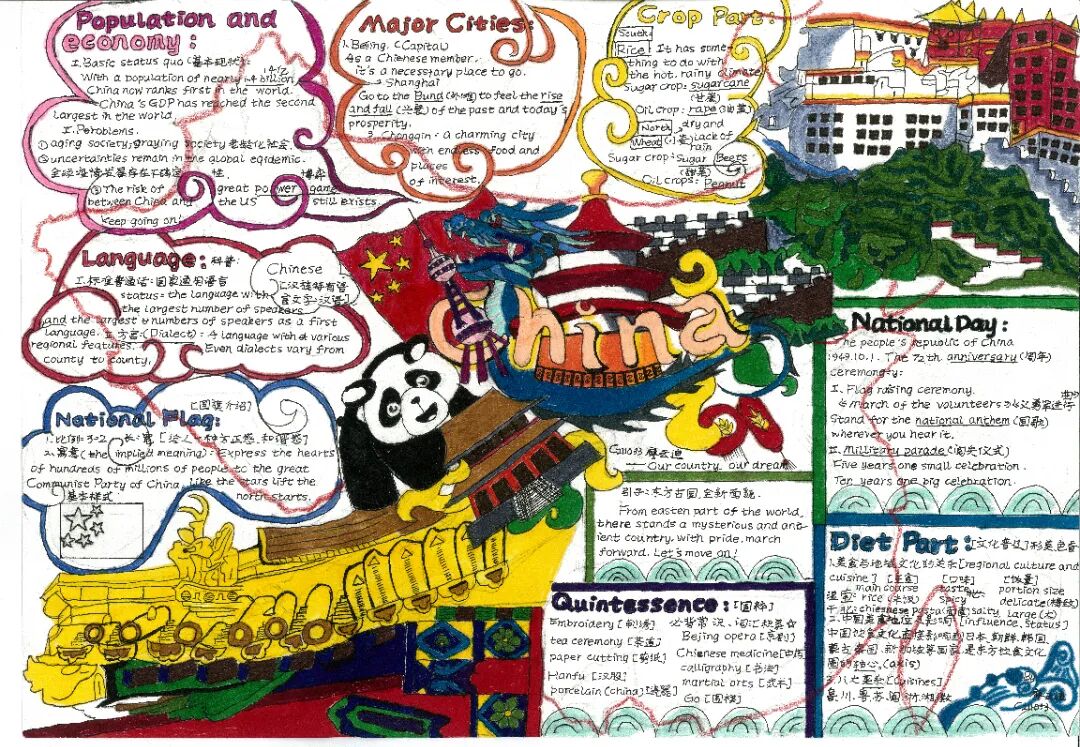 Population and
economy:
I. Basic status quo (基本现状):
With a population of nearly 14 billion, 14亿
China now ranks first in the world.
China's GDP has reached the second
largest in the world.
I. Peroblems.
① aging society; graying society 老龄化社会.
② uncertainties remain in the global eqidemic.
③ The risk of great power game 博弈
between China and the US still exists.
keep going on!
Major Cities:
1. Beijing. (Capital)
As a Chienese member,
it's a necessary place to go.
Shanghai
Go to the Bund (外滩) to feel the rise
and fall (兴衰) of the past and today's
prosperity.
3. Chongqin - a charming city
with endless food and
places
of interest.
Crop Part:
South
Rice: It has some-
thing to do with
the hot, rainy climate
Sugar crop: sugarcane
(甘蔗)
Oil crop: rape (油菜)
North dry and
Wheat (小麦) lack of
rain
Sugar crop: Sugar Beets
(甜菜)
Oil crops: Peanut
Language: 科普:
Chinese
I. 标准普通话: 国家通用语言
[汉族特有语
言文字: 汉语]
status = the language with
the largest number of speakers
and the largest numbers of speakers as a first
language. II. 方言 (Dialect): A language with various
regional features.
Even dialects vary from
county to county.
National Flag: [国旗介绍]
1. 比例: 3=2
2. 寓意 (the implied meaning): Express the hearts
of hundreds of millions of people to the great
Communist Party of China, like the stars lift the
north starts.
基本样式:
China
C211033
Our country, our dream
引子: 东方古国, 全新面貌.
From easten part of the world,
there stands a mysterious and anc-
ient country, with pride, march
forward. Let's move on!
National Day:
The people's republic of China
1949.10.1. The 72th anniversary (周年)
ceremony:
I. Flag raising ceremony.
March of the volunteers 义勇军进行
Stand for the national anthem (国歌)
wherever you hear it.
II. Millitary parade (阅兵仪式)
Five years one small celebration.
Ten years one big celebration.
Quintessence: [国粹]
Embroidery [刺绣] 必背常识、词汇积累☆
tea ceremony [茶道] Bejing opera [京剧]
paper cutting [剪纸] Chienese medicine [中医
Hanfu [汉服] calligraphy [书法]
porcelain (china) [瓷器] martial arts [武术]
Go [围棋]
Diet Part: [文化普及]
1. 美食与地域文化的关系 [regional culture and
cuisine] [主食] [口味] [饭量]
main course taste portion size
rice (米饭) spicy delicate (精致)
chienese pasta (面食) salty large (大)
二. 中国美食地位及影响 [influence, status]
中国饮食文化直接影响到日本、朝鲜、韩国、
圈的轴心. (axis)
3. 八大菜系 [cuisines]
C211033